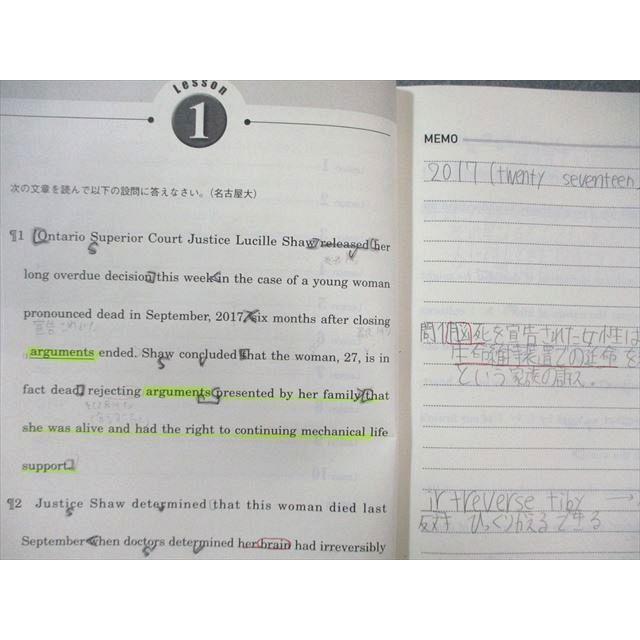 Lesson
1
次の文章を読んで以下の設問に答えなさい。（名古屋大）
¶1 Ontario Superior Court Justice Lucille Shaw released her
long overdue decision this week in the case of a young woman
pronounced dead in September, 2017, six months after closing
arguments ended. Shaw concluded that the woman, 27, is in
fact dead, rejecting arguments presented by her family that
she was alive and had the right to continuing mechanical life
support.
¶2 Justice Shaw determined that this woman died last
September when doctors determined her brain had irreversibly
MEMO
2017 (twenty seventeen
問1 脳死を宣告された女性は
生命維持装置での延命を
という家族の訴え.
ir+reverse+ibly →
反対 ひっくりかえる できる